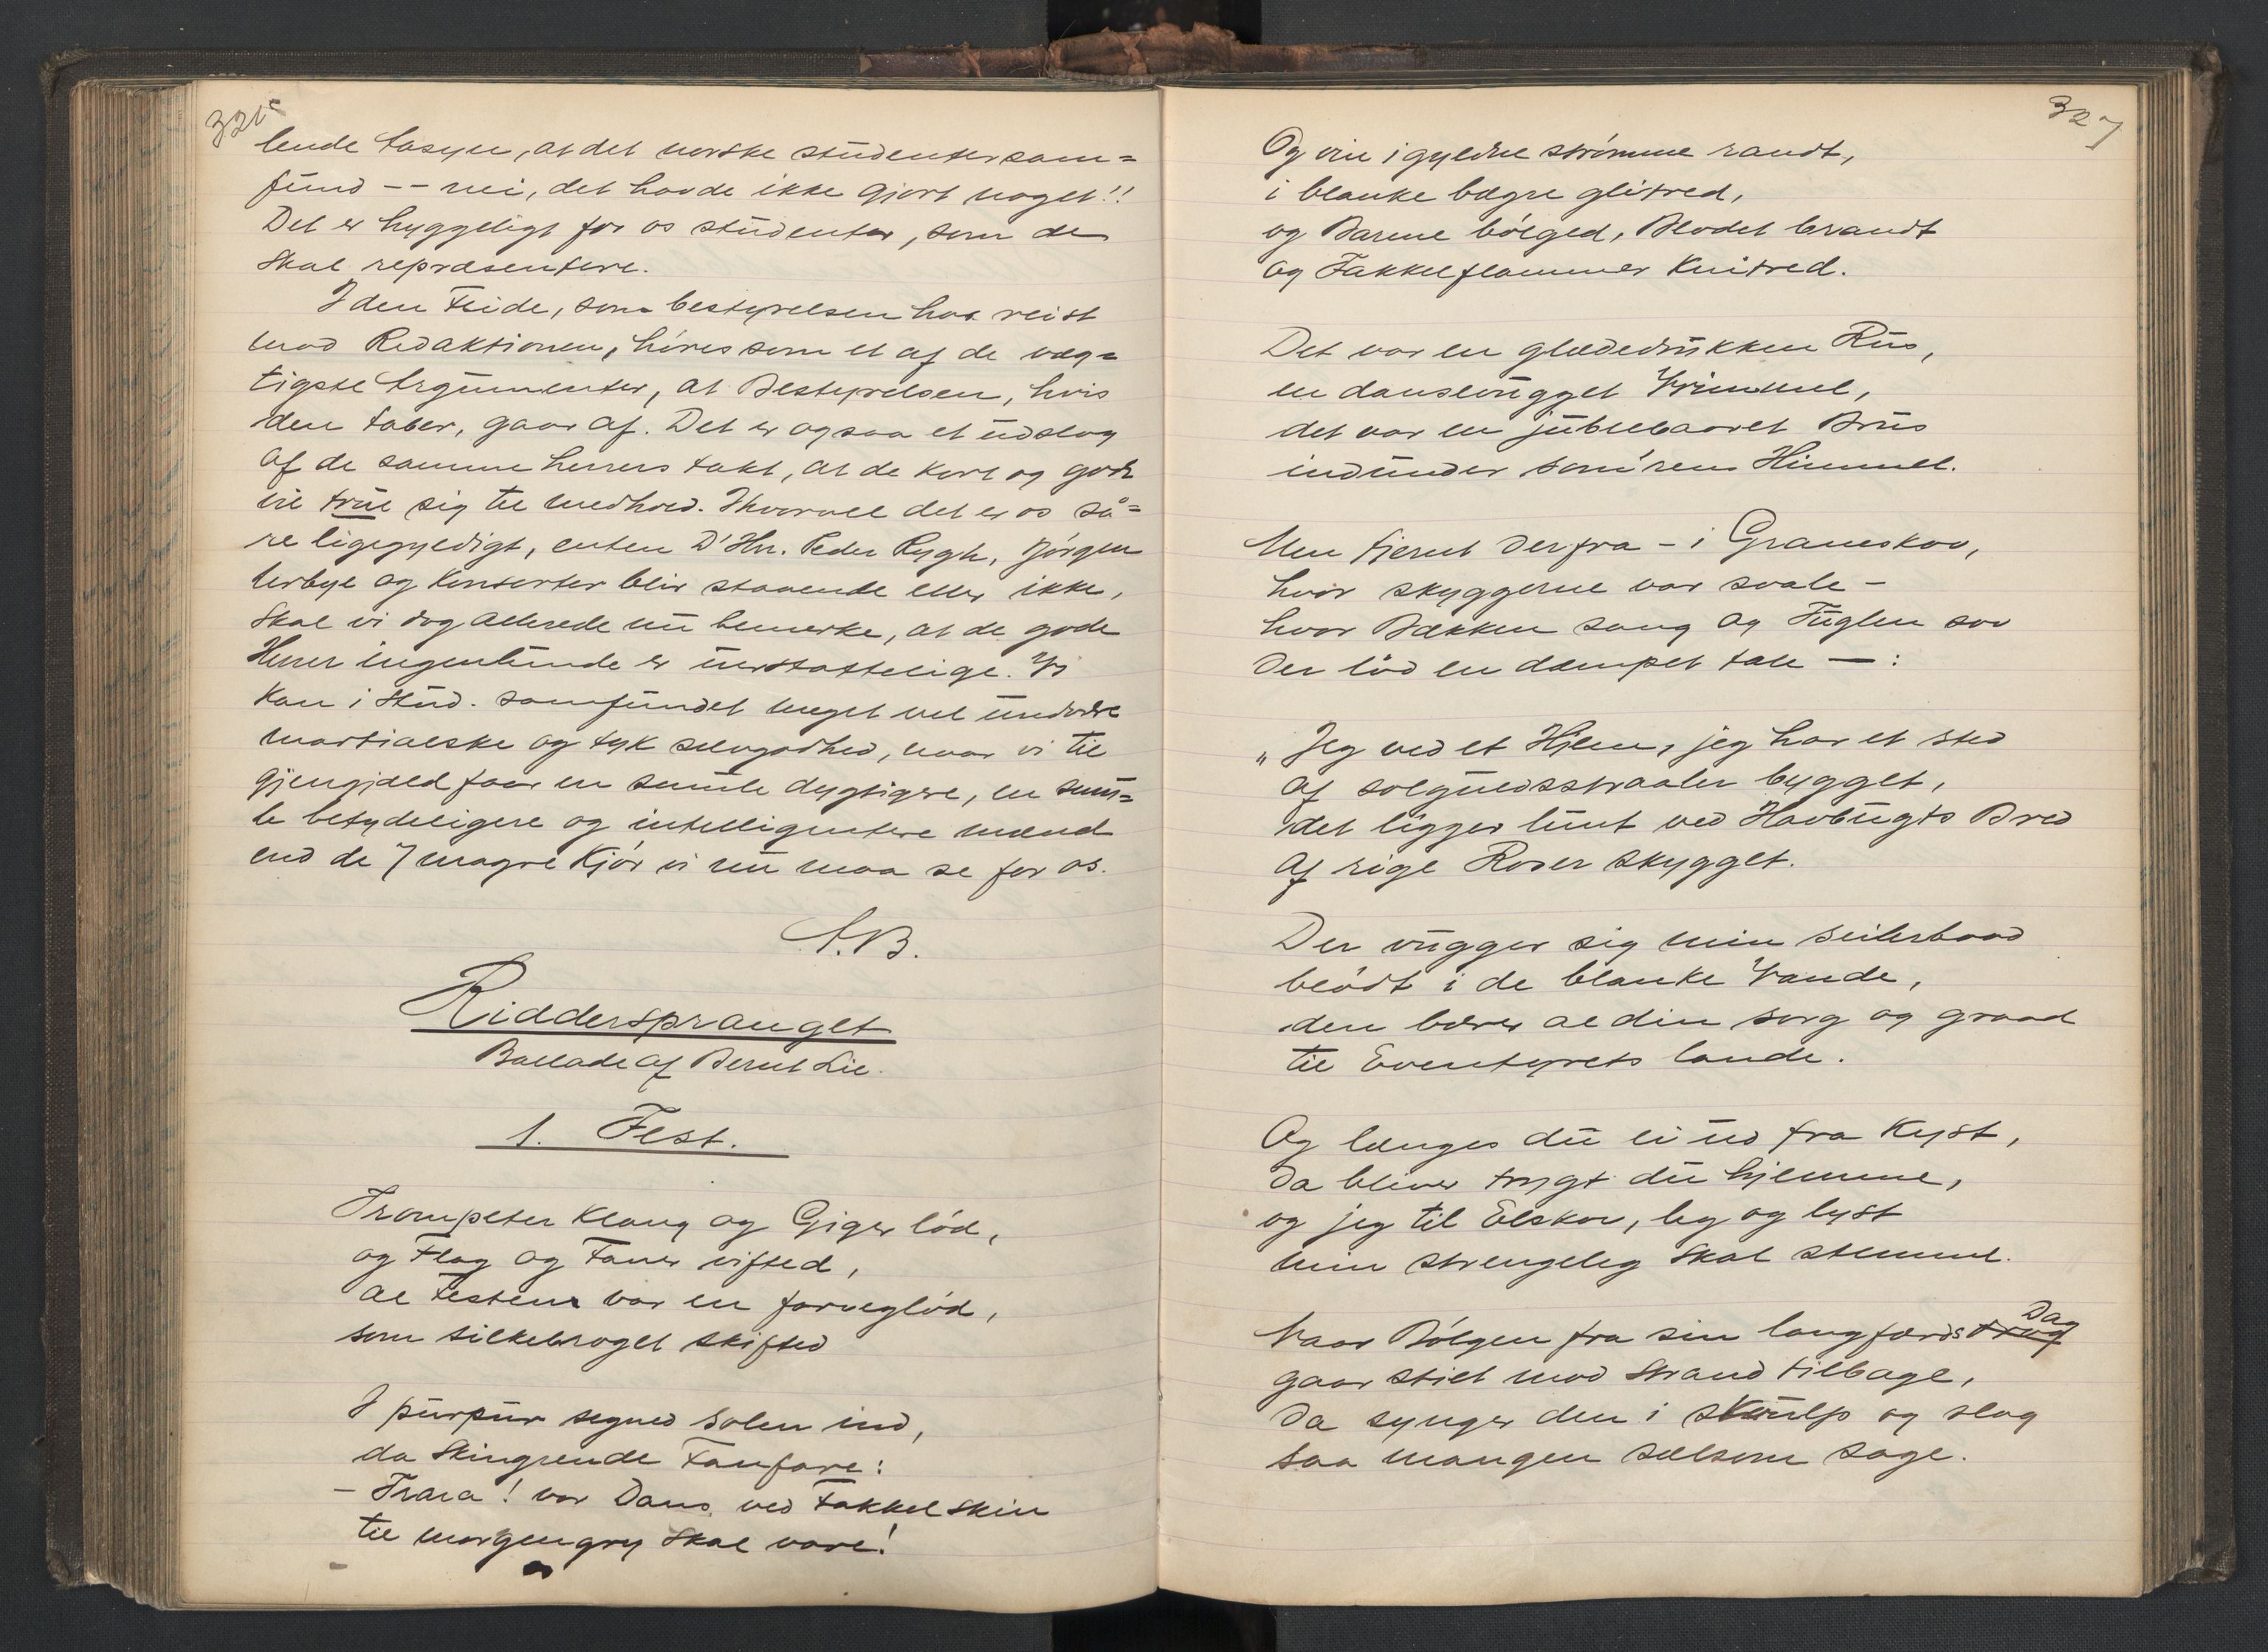 326
lende Aasyn, at det norske studentersam=
fund -- nei, det havde ikke gjort noget!!
Det er hyggeligt for os studenter, som de
skal repræsentere.
I den Feide, som bestyrelsen har reist
mod Redaktionen, höres som et af de væg=
tigste Argumenter, at Bestyrelsen, hvis
den taber, gaar af. Det er ogsaa et udslag
af de samme herrers takt, at de kort og godt
vil true sig til medhold. Ihvorvel det er os så=
re ligegyldigt, enten D'Hrr. Peder Rygh, Jörgen
Aubye og Konsorter blir staaende eller ikke,
skal vi dog allerede nu bemerke, at de gode
Herrer ingenlunde er uerstattelige. Vi
kan i Stud. samfundet meget vel undvære
martialske og tyk selvgodhed, naar vi til
gjengjæld faar en smule dygtigere, en smu=
le betydeligere og intelligentere mænd
end de 7 magre Kjör vi nu maa se for os.
A.B.
Ridderspranget
Ballade af Bernt Lie.
1. Fest.
Trompeter klang og Giger lód,
og Flag og Faner vifted,
al Festen var en farveglód,
som silkebroget skifted
I purpur segned solen ind,
da skingrende Fanfare:
- Trara! vor Dans ved Fakkelskin
til morgengry skal vare!
327
Og vin i gyldne strömme randt,
i blanke bægre glitred,
og Barme bölged, Blodet brandt
og Fakkelflammer knitred.
Det var en glædedrukken Rus,
en dansevugget Vrimmel,
det var en jubelbaaret Brus
indunder som'rens Himmel.
Men fjernt derfra - i Graneskov,
hvor skyggerne var svale -
hvor Bækken sang og Fuglen sov
der löd en dæmpet tale —:
"Jeg ved et Hjem, jeg har et sted
af solguldsstraaler bygget,
det ligger lunt ved Havbugts Bred
af rige Roser skygget.
Der vugger sig min seilerbaad
blödt i de blanke Vande,
den bærer al din sorg og graad
til Eventyrets lande.
Og længes du ei ud fra Kyst,
da bliver trygt du hjemme,
og jeg til Elskov, leg og lyst
min strengeleg skal stemme.
Naar Bölgen fra sin langfærds drag Dag
gaar stilt mod Strand tilbage,
da synger den i skvulp og slag
saa mangen sælsom sage.